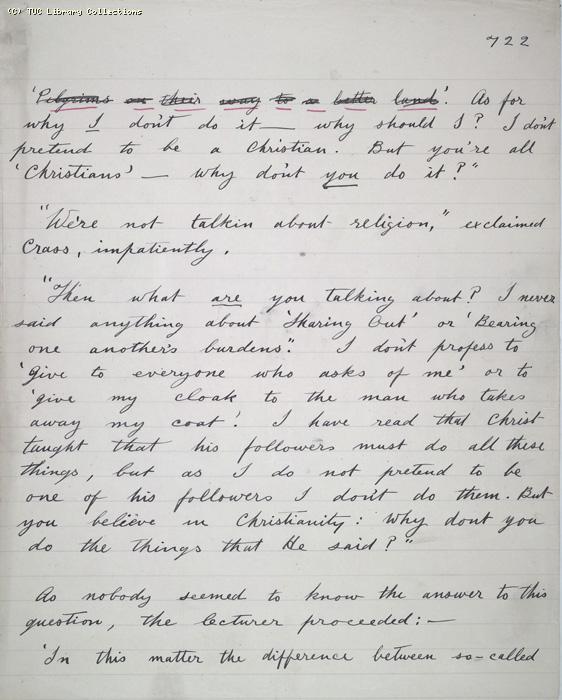 (C) TUC Library Collections
722
'Pilgrims on their way to a better land'. As for
why I don't do it — why should I? I don't
pretend to be a Christian. But you're all
'Christians' — why don't you do it?"
"We're not talkin about religion," exclaimed
Crass, impatiently.
"Then what are you talking about? I never
said anything about 'Sharing Out' or 'Bearing
one another's burdens". I don't profess to
'Give to everyone who asks of me' or to
'give my cloak to the man who takes
away my coat'. I have read that Christ
taught that his followers must do all these
things, but as I do not pretend to be
one of his followers I don't do them. But
you believe in Christianity: Why dont you
do the things that He said?"
As nobody seemed to know the answer to this
question, the lecturer proceeded: —
'In this matter the difference between so-called